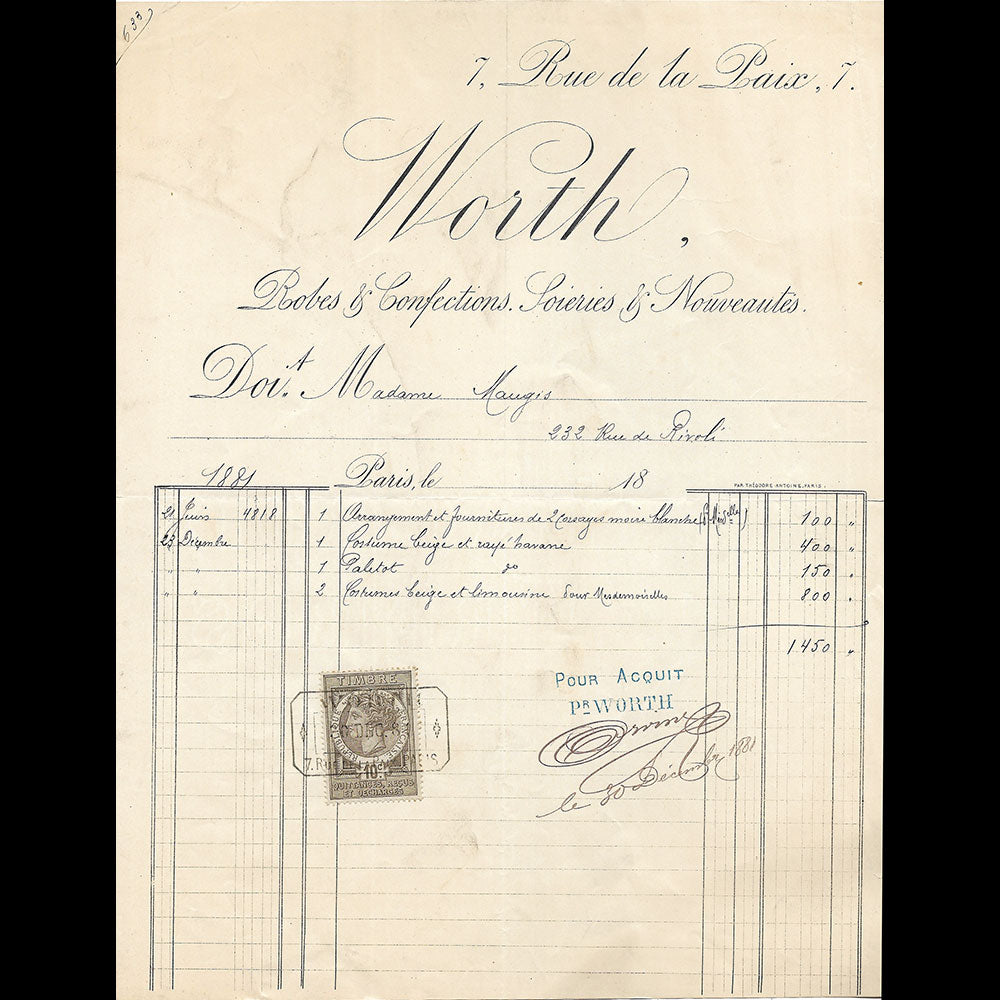 633
7, Rue de la Paix, 7.
Worth,
Robes & Confections. Soieries & Nouveautés.
Doit. Madame Maugis
232 Rue de Rivoli
1881 Paris, le 18
PAR THÉODORE ANTOINE, PARIS.
21 Juin 4818 1 Arrangement et fournitures de 2 Corsages moire blanche 100 "
23 Décembre 1 Costume beige et rayé havane 400 "
" " 1 Paletot do 150 "
" " 2 Costumes beige et limousine pour Mesdemoiselles 800 "
1450 "
TIMBRE
RÉPUBLIQUE FRANÇAISE
10c
QUITTANCES, REÇUS
ET DÉCHARGES
7. Rue PARIS
POUR ACQUIT
PR WORTH
le 30 Décembre 1881